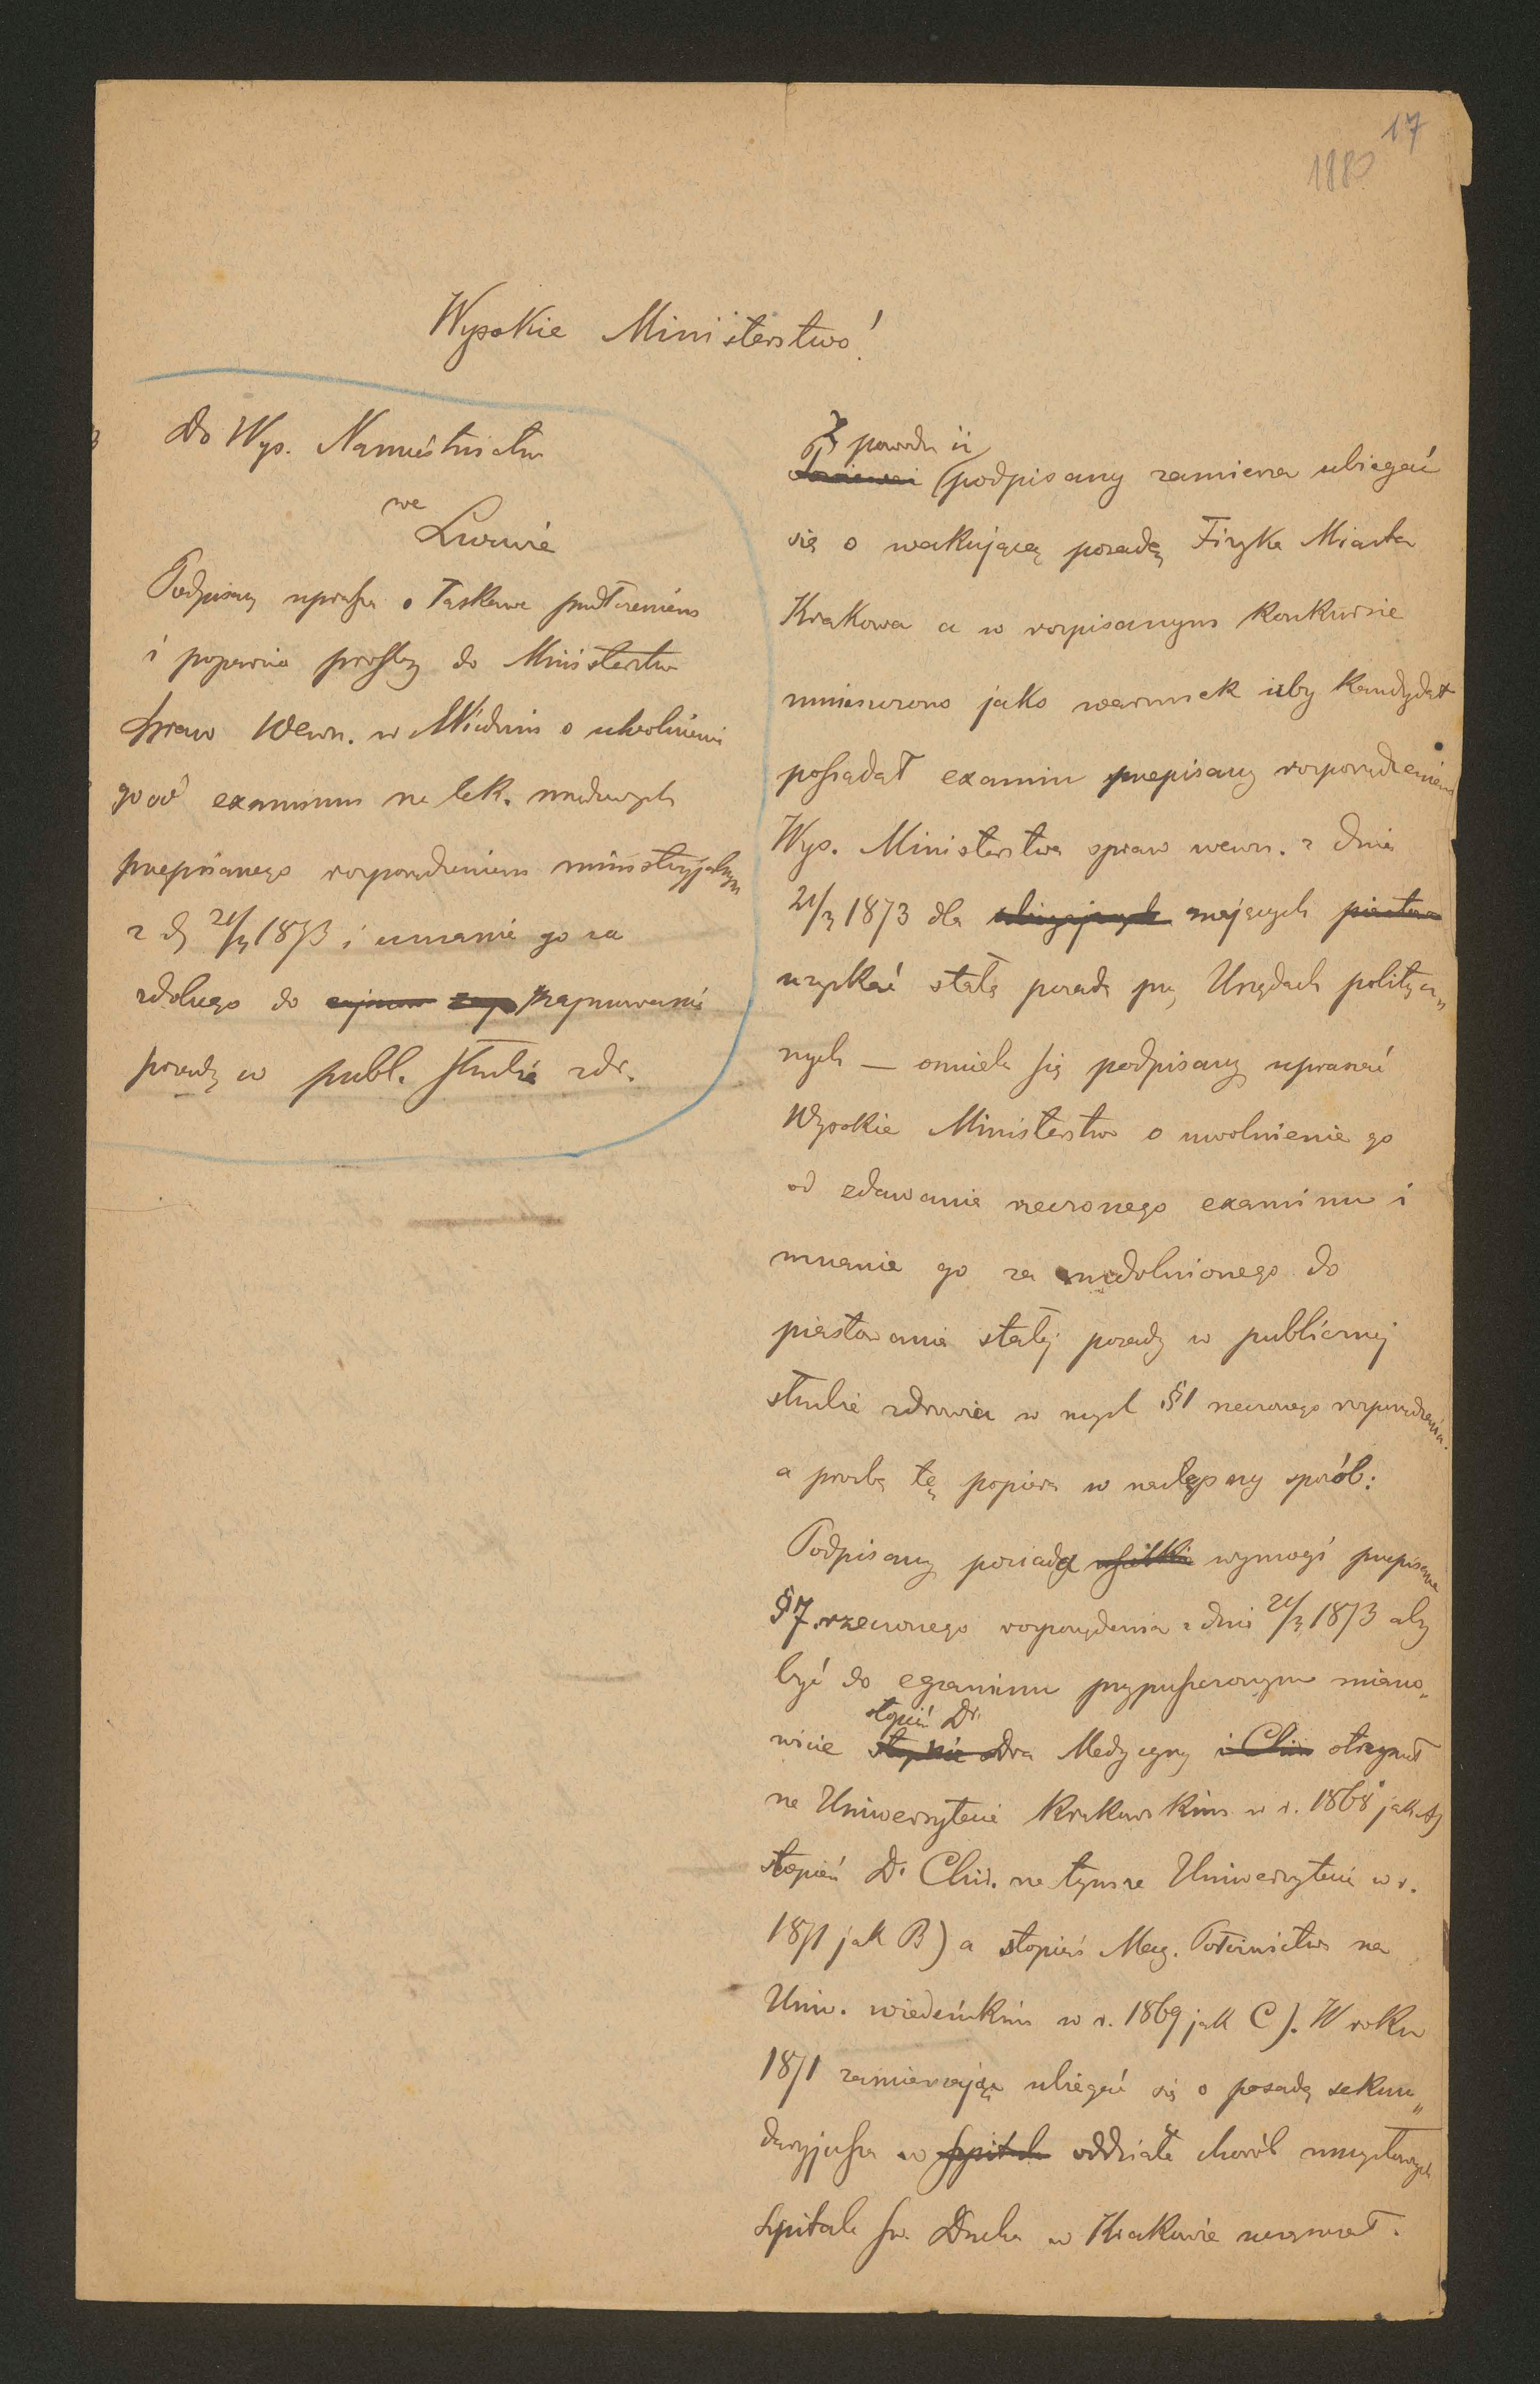 17
1880
Wysokie Ministerstwo!
Do Wys. Namiestnictwa
we
Lwowie
Podpisany uprasza o łaskawe przedłożenie
i poparcie prośby do Ministerstwa
Spraw Wewn. w Wiedniu o uwolnienie
go od examinu na lek. rządowych
przepisanego rozporządzeniem ministeryjalnym
z d. 21/3 1873 i uznanie go za
zdolnego do zajmowania
posady w publ. służbie zdr.
Z powodu iż
podpisany zamierza ubiegać
się o wakującą posadę Fizyka Miasta
Krakowa a w rozpisanym Konkursie
umieszczono jako warunek iżby Kandydat
posiadał examin przepisany rozporządzeniem
Wys. Ministerstwa spraw wewn. z dnia
21/3 1873 dla ubiegających mających
uzyskać stałą posadę przy Urzędach politycz„
nych — ośmiela się podpisany upraszać
Wysokie Ministerstwo o uwolnienie go
od zdawania rzeczonego examinu i
uznanie go za uzdolnionego do
piastowania stałej posady w publicznej
służbie zdrowia w myśl §1 rzeczonego rozporządzenia.
a prośbę tę popiera w następny sposób:
Podpisany posiada wszelkie wymogi przepisane
§7. rzeczonego rozporządzenia z dnia 21/3 1873 aby
być do egzaminu przypuszczonym miano„
stopień Dr.
wicie Dra Medycyny i Chir. otrzymał
na Uniwersytecie Krakowskim w r. 1868 jak A)
stopień Dr Chir. na tymże Uniwersytecie w r.
1871 jak B) a stopień Mag. Położnictwa na
Uniw. wiedeńskim w r. 1869 jak C). W roku
1871 zamierzając ubiegać się o posadę sekun„
daryjusza w Szpitalu oddziale chorób umysłowych
Szpitala Św. Ducha w Krakowie